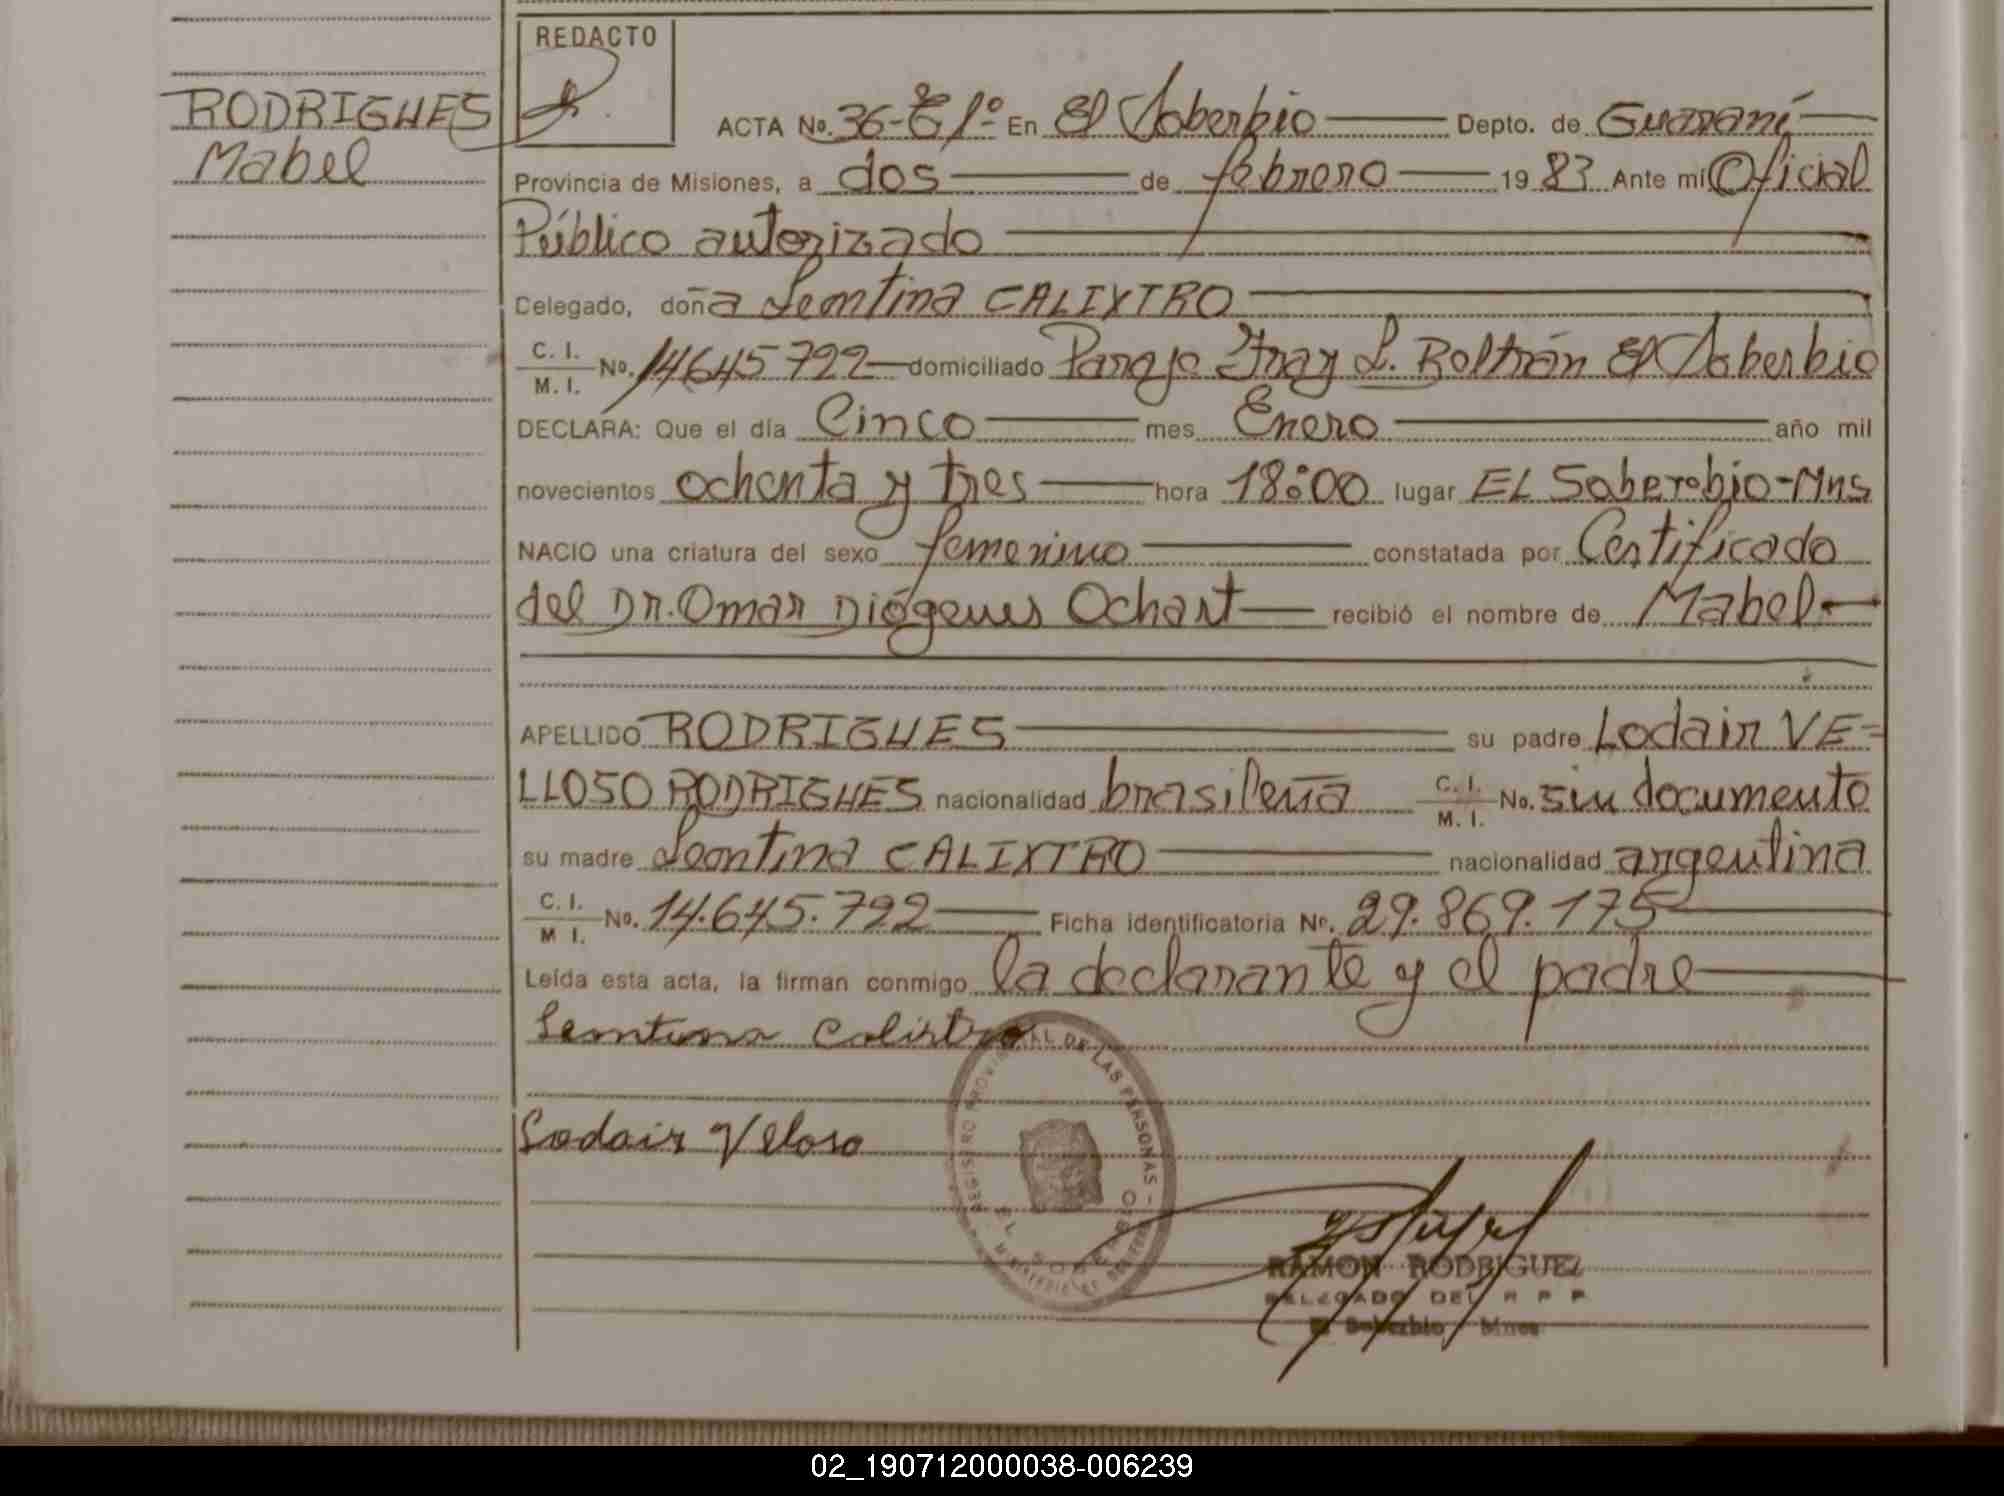 REDACTO
RODRIGUES
Mabel
ACTA No. 36-Tº1º En El Soberbio Depto. de Guaraní
Provincia de Misiones, a dos de febrero 1983 Ante mi Oficial
Público autorizado
Delegado, doña Leontina CALIXTRO
C. I.
M. I. No. 14645722 domiciliado Paraje Fray L. Beltrán El Soberbio
DECLARA: Que el día Cinco mes Enero año mil
novecientos ochenta y tres hora 18:00 lugar EL Soberbio-Mns
NACIO una criatura del sexo femenino constatada por Certificado
del Dr. Omar Diógenes Ochart recibió el nombre de Mabel
APELLIDO RODRIGUES su padre Lodair VE-
LLOSO RODRIGUES nacionalidad brasileña C. I. M. I. No. sin documento
su madre Leontina CALIXTRO nacionalidad argentina
C. I.
M I. No. 14.645.722 Ficha identificatoria No. 29.869.175
Leída esta acta, la firman conmigo la declarante y el padre
Leontina Calistro
Lodair Veloso
REGISTRO PROVINCIAL DE LAS PERSONAS -
EL SOBERBIO
RAMON RODRIGUEZ
DELEGADO DEL R P P
El Soberbio Mnes
02_190712000038-006239